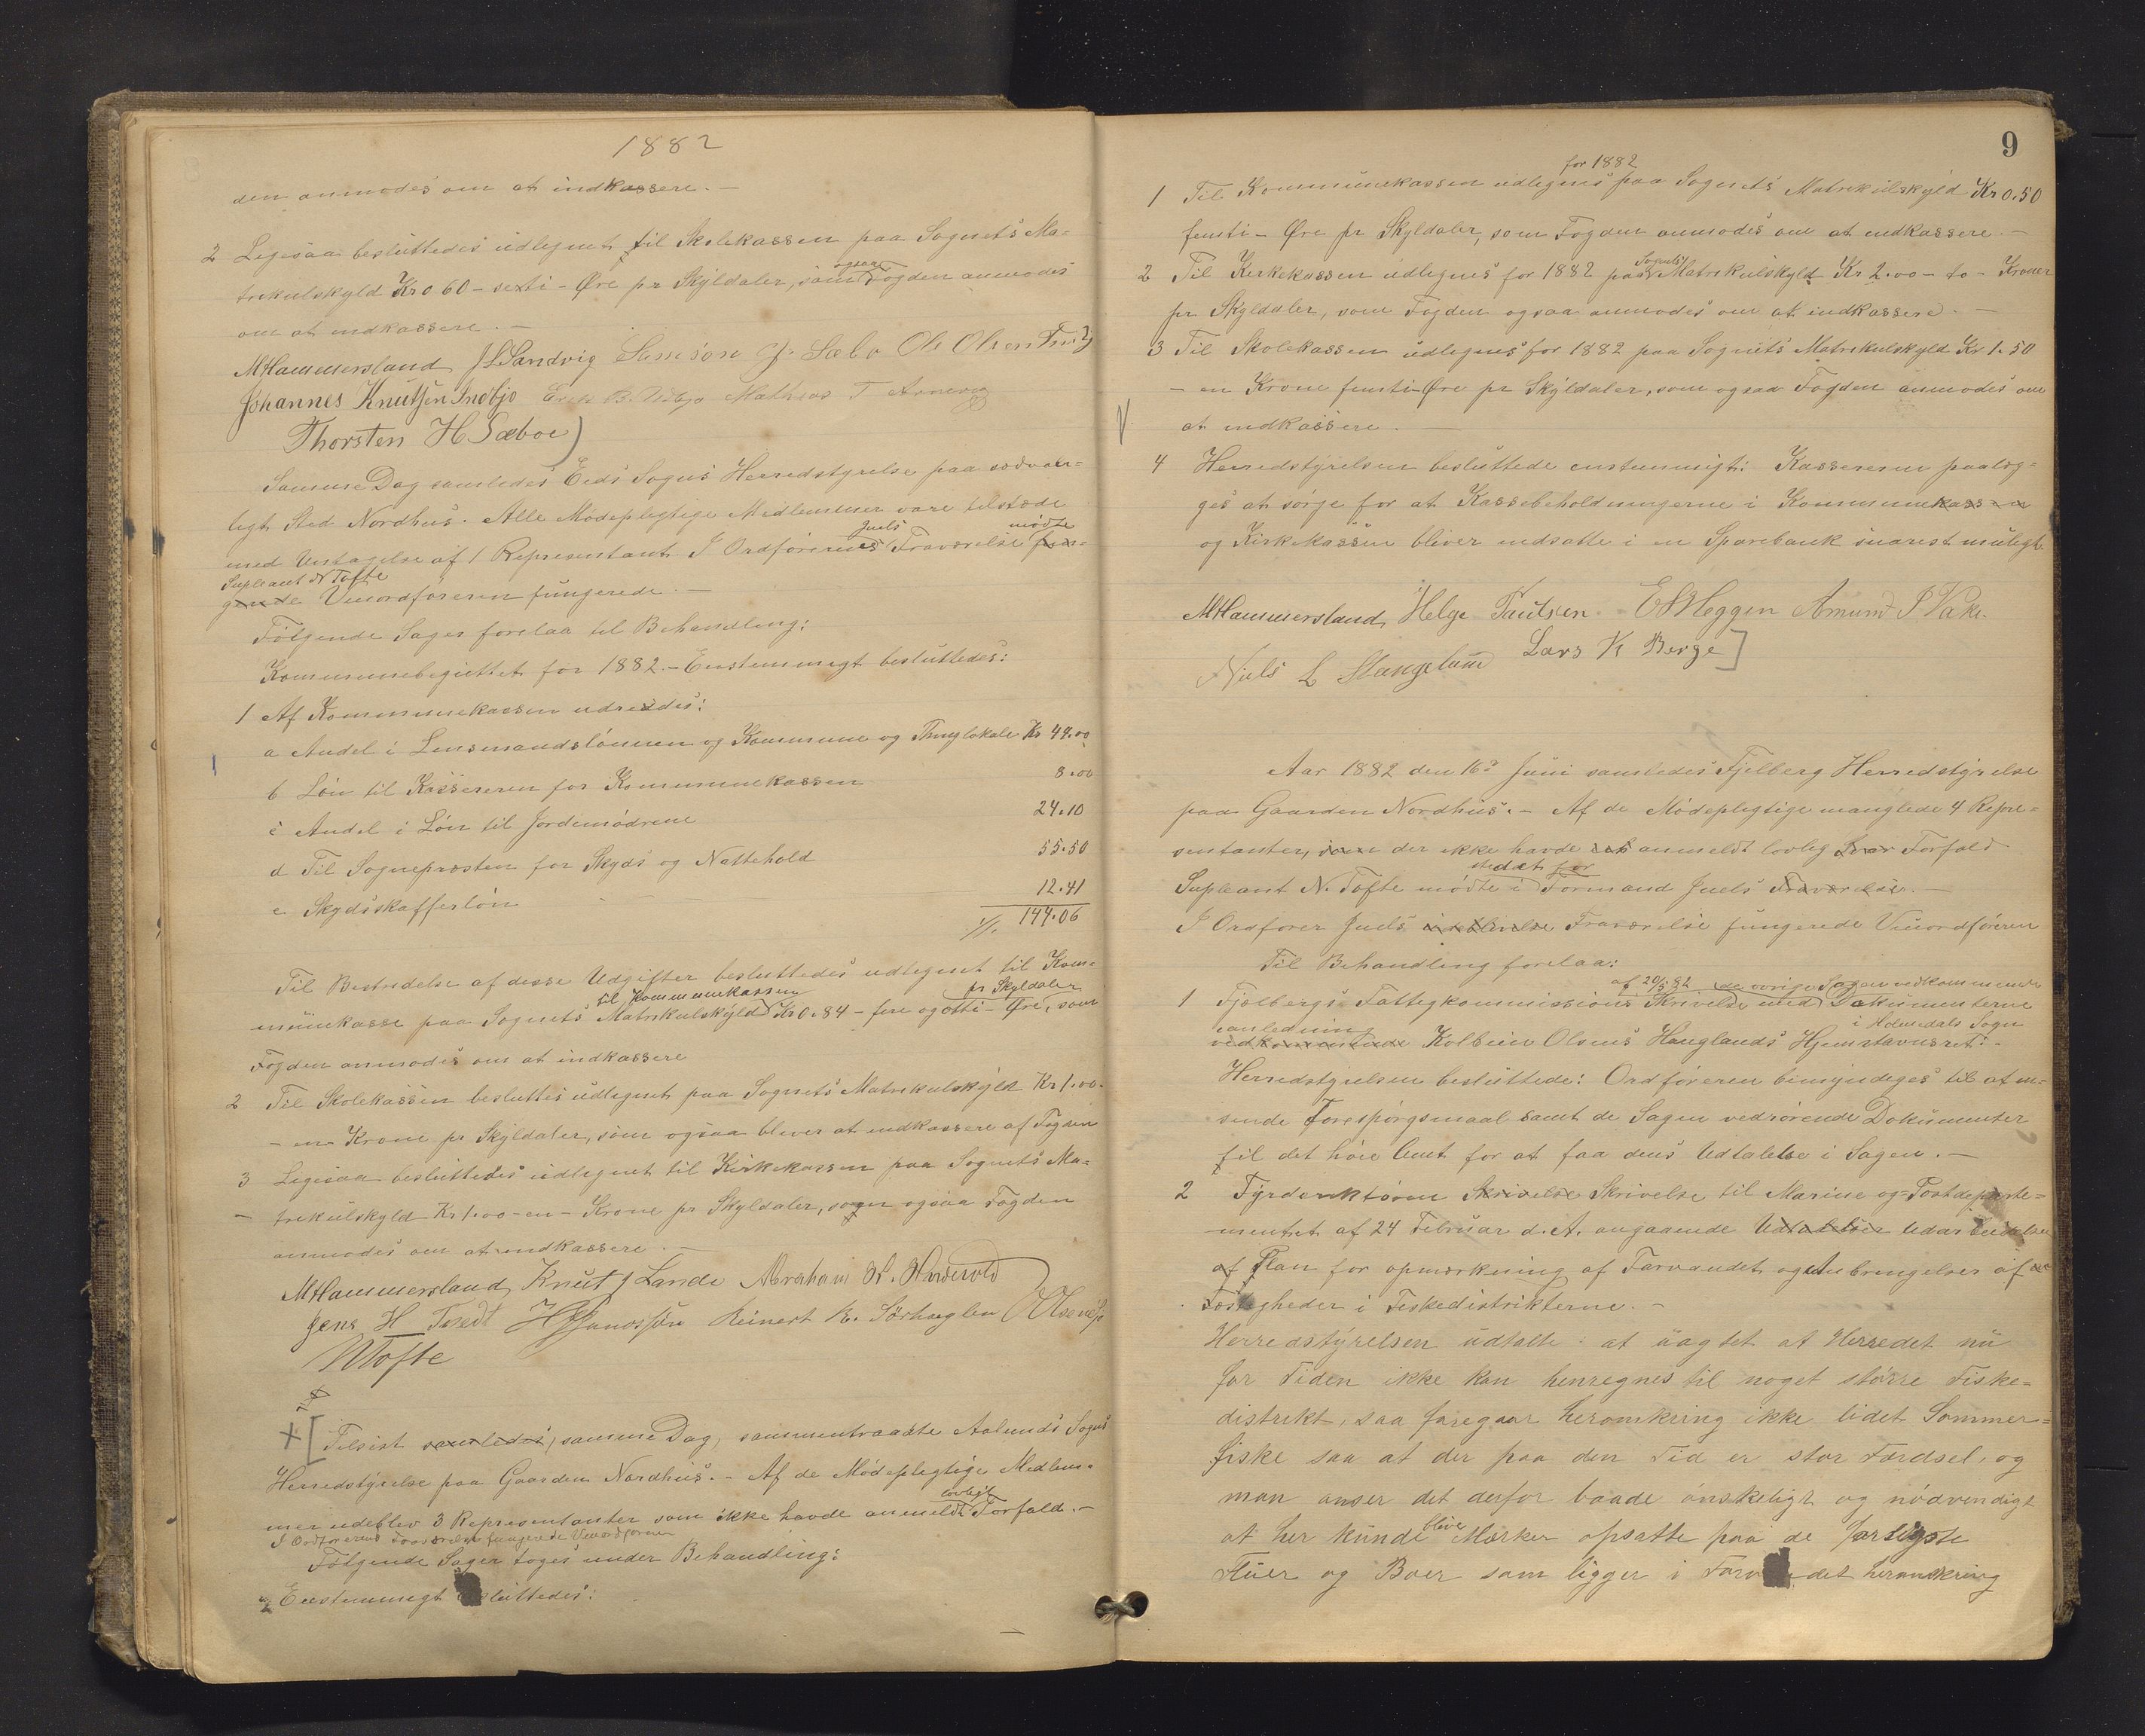 1882
den anmodes om at indkassere. —
2 Ligesaa besluttedes udlegnet til Skolekassen paa Sognets Ma-
trikulskyld Kr 0 60 - sexti - Øre pr Skylddaler, som ogsaa Fogden anmodes
om at indkassere. —
MHammersland J L Sandvig Samson J. Sæbø Ole Olsen
Johannes Knutsen Indbjo Erik B. Mathias T
Thorsten H Sæboe
Samme Dag samledes Eids Sogns Herredstyrelse paa sædvan-
ligt Sted Nordhus. Alle Mødepligtige Medlemmer vare tilstæde
med Undtagelse af 1 Representant. I Ordførerens Juels Fraværelse mødte fun-
gerede Supleant N Tofte Viceordføreren fungerede. —
Følgende Sager forelaa til Behandling:
Kommunebugettet for 1882. - Eenstemmigt besluttedes:
1 Af Kommunekassen udredes:
a Andel i Lensmandslønnen og Kommune og Thinglokale Kr 44.00
b Løn til Kassereren for Kommunekassen 8.00
c Andel i Løn til Jordemødrene 24.10
d Til Sognepræsten for Skyds og Nattehold 55.50
e Skydsskafferløn 12.41
144.06
Til Bestridelse af disse Udgifter besluttedes udlegnet til Kom-
munekasse paa Sognets til Kommunekassen Matrikulskyld Kr 0.84 - fire og otti - Øre pr Skyldaler, som
Fogden anmodes om at indkassere
2 Til Skolekassen besluttes udlegnet paa Sognets Matrikulskyld Kr 1.00
- en Krone pr Skyldaler, som ogsaa bliver at indkassere af Fogden
3 Ligesaa besluttedes udlegnet til Kirkekassen paa Sognets Ma-
trikulskyld Kr 1.00 - en - Krone pr Skyldaler, som ogsaa Fogden
anmodes om at indkassere. —
MHammersland Knut J Lande Abraham
Jens H Tvedt H Hanssøn Reinert R. Sørhuglen O Olsen
N Tofte
Tilsist samledes, samme Dag, sammentraadte Aalunds Sogns
Herredstyrelse paa Gaarden Nordhus. - Af de Mødepligtige Medlem-
mer udeblev 3 Representanter som ikke havde anmeldt lovligt Forfald. -
I Ordførerens Fraværelse fungerede Viceordføreren
Følgende Sager toges under Behandling:
Eenstemmigt besluttedes:
9
1 Til Kommunekassen udlegnes for 1882 paa Sognets Matrikulskyld Kr 0.50
femti - Øre pr Skyldaler, som Fogden anmodes om at indkassere. —
2 Til Kirkekassen udlegnes for 1882 paa Sognets Matrikulskyld Kr 2.00 - to - Kroner
pr Skyldaler, som Fogden ogsaa anmodes om at indkassere. —
3 Til Skolekassen udlegnes for 1882 paa Sognets Matrikulskyld Kr 1.50
- en Krone femti Øre pr Skyldaler, som ogsaa Fogden anmodes om
at indkassere. —
4 Herredstyrelsen besluttede enstemmigt: Kassererne paalæg-
ges at sørge for at Kassebeholdningerne i Kommunekassen
og Kirkekassen bliver indsatte i en Sparebank snarest muligt
MHammersland, Helge Paulsen Amund
Niels L Lars K Berge
Aar 1882 den 16d Juni samledes Fjelberg Herredstyrelse
paa Gaarden Nordhus. - Af de Mødepligtige manglede 4 Repre-
sentanter, som der ikke havde anmeldt lovlig Forfald
Supleant N. Tofte mødte i stedet for Formand Juels Fraværelse. —
I Ordfører Juels Fraværelse fungerede Viceordføreren
Til Behandling forelaa:
1 Fjelbergs Fattigkommissions Skrivelse af 20/5 82 med de øvrige Sagen vedkommende Dokumenter
anledning vedkommende Kolbein Olsens Hauglands Hjemstavnsret i Sogn. -
Herredstyrelsen besluttede: Ordføreren bemyndiges til at m-
sende Forespørgsmaal samt de Sagen vedrørende Dokumenter
til det høie Amt for at faa dens Udtalelse i Sagen. —
2 Fyrdirektøren Skrivelse Skrivelse til Marine og Postdeparte-
mentet af 24 Februar d. A. angaaende Udtalelser
af Plan for opmærkning af Farvandet og Anbringelser af
Fæstigheder i Fiskedistrikterne. -
Herredstyrelsen udtalte at uagtet at Herredet nu
for Tiden ikke kan henregnes til noget større Fiske-
distrikt, saa foregaar heromkring ikke lidet Sommer-
fiske saa at der paa den Tid er stor Færdsel, og
man anser det derfor baade ønskeligt og nødvendigt
at her kunde blive Mærker opsatte paa de farligste
Fluer og Boer som ligger i Farvandet heromkring